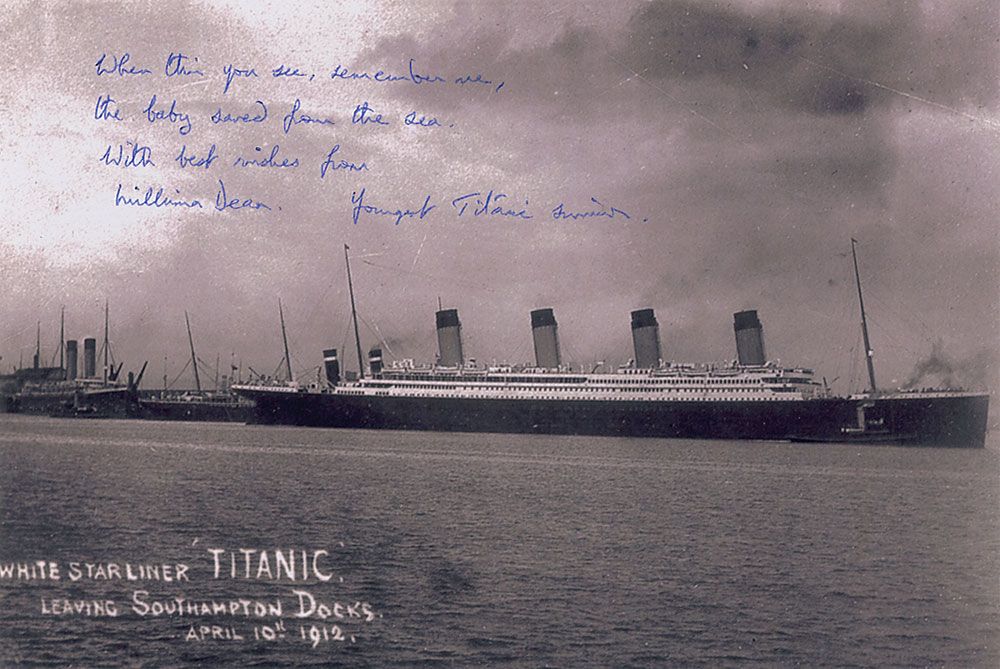 When this you see, remember me,
the baby saved from the sea.
With best wishes from
Millvina Dean. Youngest Titanic survivor.
WHITE STAR LINER "TITANIC".
LEAVING SOUTHAMPTON DOCKS.
APRIL 10TH 1912.